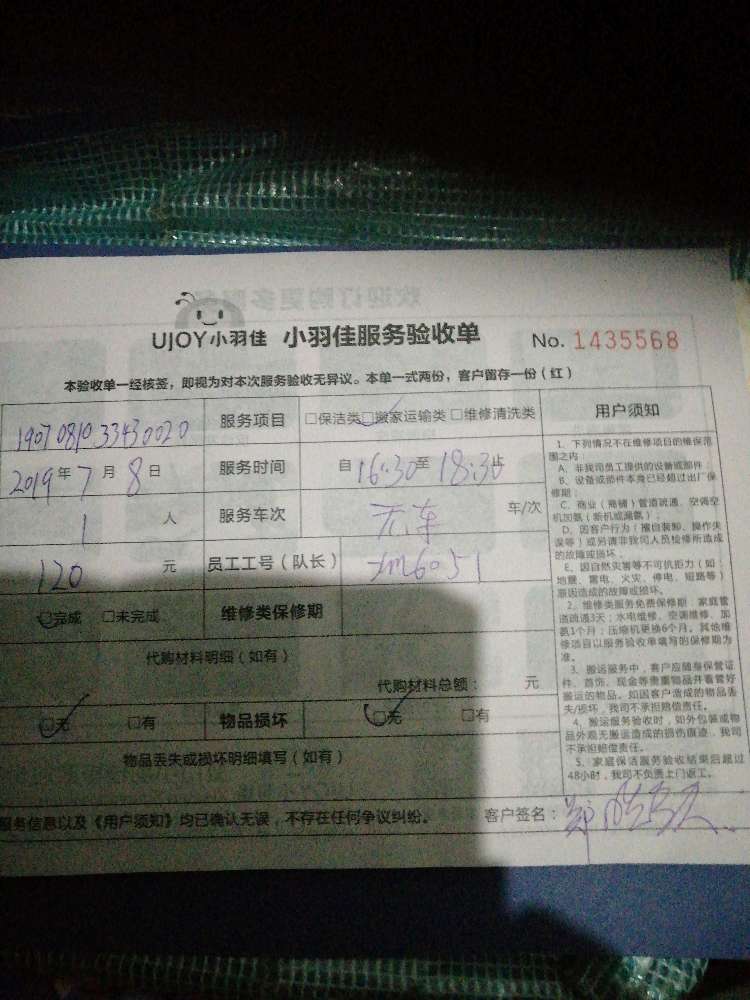 UJOY小羽佳 小羽佳服务验收单 No. 1435568
本验收单一经核签，即视为对本次服务验收无异议。本单一式两份，客户留存一份（红）
1907081033430020 服务项目 □保洁类 □搬家运输类 □维修清洗类
2019年7月8日 服务时间 自16:30至18:30止
1人 服务车次 无车 车/次
120元 员工工号（队长） xm6051
□完成 □未完成 维修类保修期
代购材料明细（如有）
代购材料总额： 元
□无 □有 物品损坏 □无 □有
物品丢失或损坏明细填写（如有）
服务信息以及《用户须知》均已确认无误，不存在任何争议纠纷。 客户签名：郑
用户须知
1、下列情况不在维修项目的维保范
围之内：
A、非我司员工提供的设备或部件；
B、设备或部件本身已经超过出厂保
修期；
C、商业（商铺）管道疏通、空调空
机加氨（新机或漏氨）；
D、因客户行为（擅自装卸、操作失
误等）或另请非我司人员检修所造成
的故障或损坏。
E、因自然灾害等不可抗距力（如：
地震、雷电、火灾、停电、短路等）
原因造成的故障或损坏。
2、维修类服务免费保修期：家庭管
道疏通3天；水电维修、空调维修、加
氨1个月；压缩机更换6个月。其他维
修项目以服务验收单填写的保修期为
准。
3、搬运服务中，客户应随身保管证
件、首饰、现金等贵重物品并看管好
搬运的物品。如因客户造成的物品丢
失/损坏，我司不承担赔偿责任。
4、搬运服务验收时，如外包装或物
品外观无搬运造成的损伤痕迹，我司
不承担赔偿责任。
5、家庭保洁服务验收结束后超过
48小时，我司不负责上门返工。